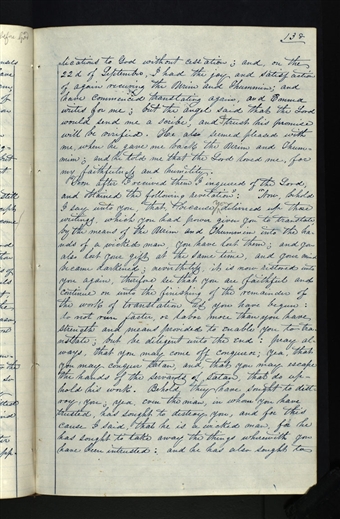 138
lications to God without cessation; and on the
22d of September, I had the joy and satisfaction
of again receiving the Urim and Thummim; and
have commenced translating again, and Emma
writes for me; but the angel said that the Lord
would send me a scribe, and trusts his promise
will be verified. He also seemed pleased with
me when he gave me back the Urim and Thum-
mim; and he told me that the Lord loved me, for
my faithfulness and humility.
Soon after I received them I inquired of the Lord,
and obtained the following revelation: Now, behold
I say unto you, that, because you delivered up those
writings which you had power given you to translate
by the means of the Urim and Thummim into the ha-
nds of a wicked man you have lost them; and you
also lost your gift at the same time, and your mind
became darkened; nevertheless, it is now restored unto
you again, therefore see that you are faithful and
continue on unto the finishing of the remainder of
the work of translation as you have begun:
do not run faster, or labor more than you have
strength and means provided to enable you to tran
slate; but be diligent unto the end: pray al-
ways, that you may come off conqueror; yea, that
you may conquer Satan, and that you may escape
the hands of the servants of Satan, that do up-
hold his work. Behold they have sought to dest-
roy you; yea, even the man in whom you have
trusted, has sought to destroy you, and for this
cause I said, that he is a wicked man, for he
has sought to take away the things wherewith you
have been intrusted: and he has also sought to